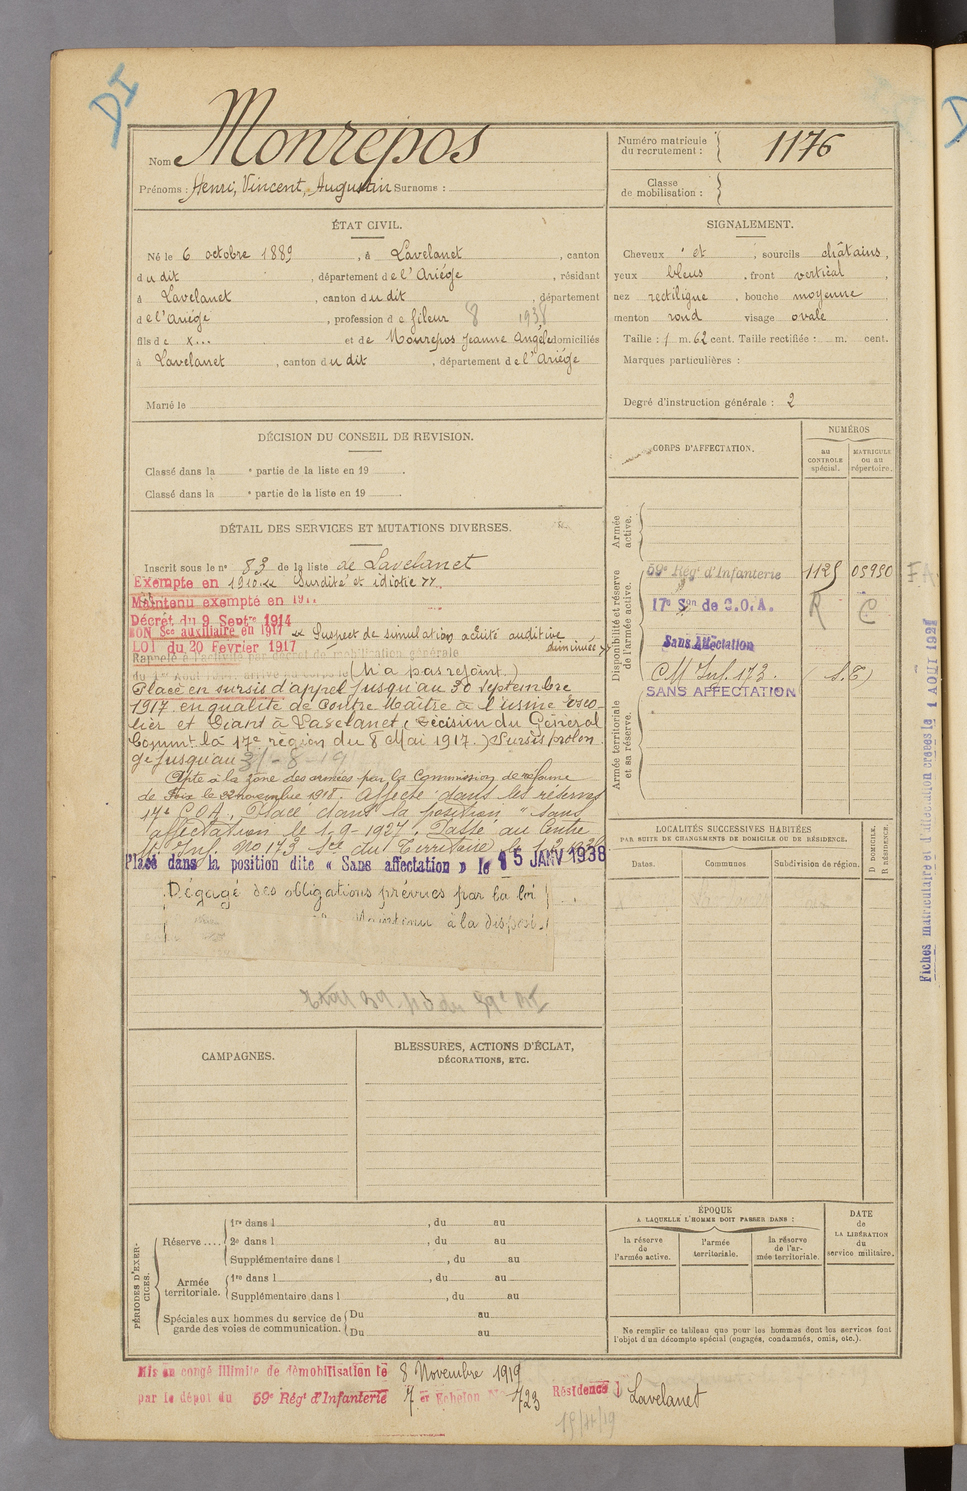 DI
Nom Monrepos
Prénoms : Henri, Vincent, Augustin Surnoms :
Numéro matricule du recrutement : 1176
Classe de mobilisation :
ÉTAT CIVIL.
Né le 6 octobre 1889, à Lavelanet, canton
du dit, département de l'Ariége, résidant
à Lavelanet, canton du dit, département
de l'Ariége, profession de fileur 8 1938
fils de x... et de Monrepos Jeanne Angèle domiciliés
à Lavelanet, canton du dit, département de l'Ariége
Marié le
SIGNALEMENT.
Cheveux et, sourcils châtains,
yeux bleus, front vertical,
nez rectiligne, bouche moyenne,
menton rond visage ovale
Taille : 1 m. 62 cent. Taille rectifiée : m. cent.
Marques particulières :
Degré d'instruction générale : 2
DÉCISION DU CONSEIL DE REVISION.
Classé dans la e partie de la liste en 19 .
Classé dans la e partie de la liste en 19 .
DÉTAIL DES SERVICES ET MUTATIONS DIVERSES.
Inscrit sous le n° 83 de la liste de Lavelanet
Exempté en 1910 « Surdité et idiotie »
Maintenu exempté en 191
Décret du 9 Septre 1914
BON Sce auxiliaire en 1917 « Suspect de simulation acuité auditive diminuée »
LOI du 20 Février 1917
Rappelé à l'activité par décret de mobilisation générale
du 1er Août 1914, arrivé au corps le (N'a pas rejoint.)
Placé en sursis d'appel jusqu'au 30 septembre
1917 en qualité de Contre Maître à l'usine Esco-
lier et à Lavelanet (Décision du Général
Commt la 17e région du 8 Mai 1917.) Sursis prolon
gé jusqu'au 31-8-19
Apte à la zone des armées par la Commission de réforme
de Foix le 22 novembre 1918. Affecté dans les réserves
17e C.O.A. Placé dans la position "sans
affectation le 1-9-1927. Passé au Centre
M. Inf. No 173 Sce du Territoire le
Placé dans la position dite « Sans affectation » le 15 JANV 1938
Dégagé des obligations prévues par la loi
Maintenu à la dispos.
CORPS D'AFFECTATION.
NUMÉROS
au CONTROLE spécial.
MATRICULE ou au répertoire.
Armée active.
Disponibilité et réserve de l'armée active.
59e Régt d'Infanterie 1125 05950
17e Son de C.O.A. R C
Sans Affectation
CM Inf. 173 (S.T)
SANS AFFECTATION
Armée territoriale et sa réserve.
LOCALITÉS SUCCESSIVES HABITÉES
PAR SUITE DE CHANGEMENTS DE DOMICILE OU DE RÉSIDENCE.
Dates. Communes Subdivision de région. D DOMICILE. R RÉSIDENCE.
Fiches matriculaire et d'affectation créées le 1 AOUT 1927
CAMPAGNES.
BLESSURES, ACTIONS D'ÉCLAT,
DÉCORATIONS, ETC.
PÉRIODES D'EXERCICES.
Réserve .... 1re dans l , du au
2e dans l , du au
Supplémentaire dans l , du au
Armée territoriale. 1re dans l , du au
Supplémentaire dans l , du au
Spéciales aux hommes du service de garde des voies de communication. Du au
Du au
ÉPOQUE
A LAQUELLE L'HOMME DOIT PASSER DANS :
la réserve de l'armée active.
l'armée territoriale.
la réserve de l'armée territoriale.
DATE de LA LIBÉRATION du service militaire.
Ne remplir ce tableau que pour les hommes dont les services font
l'objet d'un décompte spécial (engagés, condamnés, omis, etc.).
Mis en congé illimité de démobilisation le 8 Novembre 1919
par le dépôt du 59e Régt d'Infanterie 7 er Echelon No 723 Résidence Lavelanet